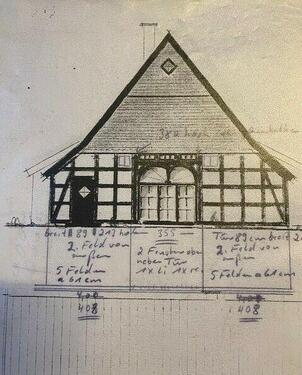 breit 89 213 hoch
355
Tür 89 cm breit 2
2. Feld von
außen
5 Felder
a 61 cm
2 Fenster oben
neben Tür
1x li 1x re.
2. Feld von
außen
5 Felder a 61 cm
400
408
400
408